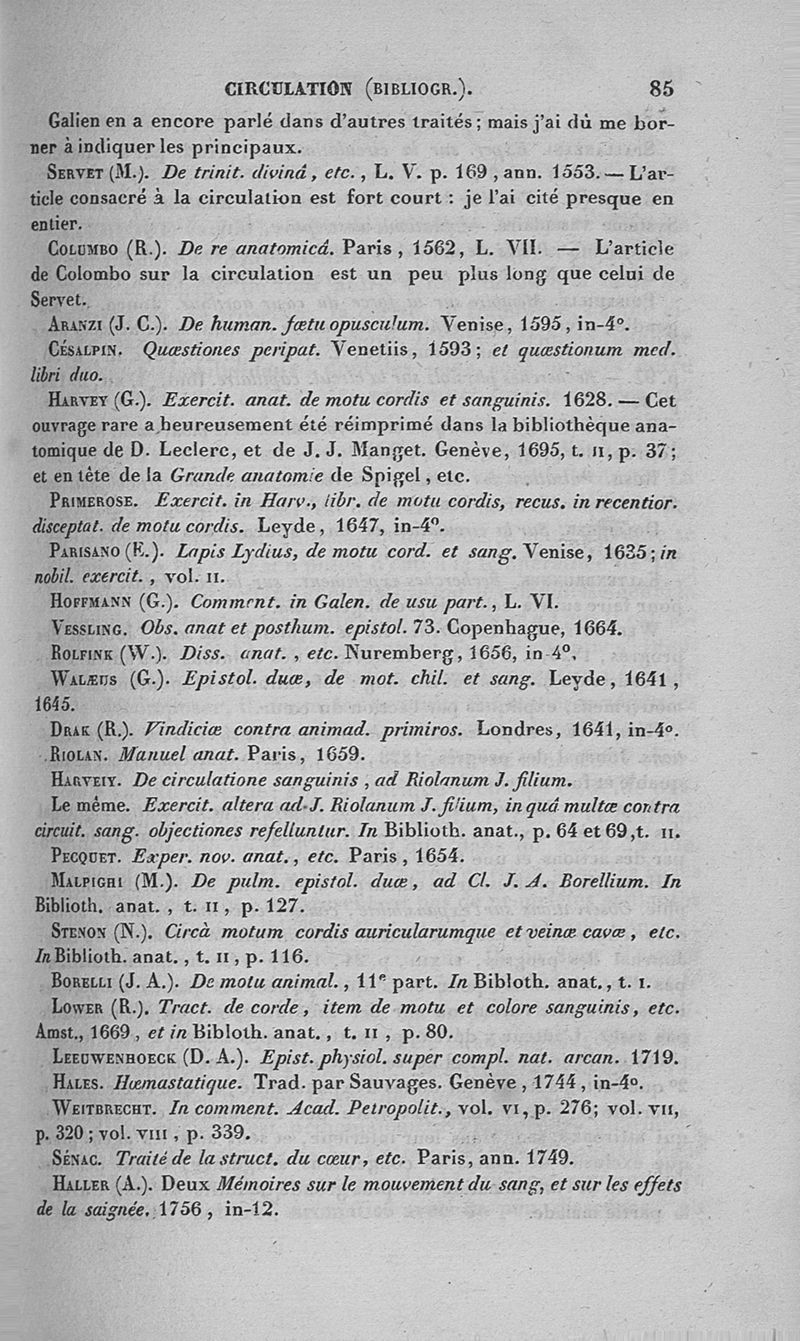 CIRCULATION (BIBLIOGR.). 85
Galien en a encore parlé dans d'autres traités; mais j'ai dû me bor-
ner à indiquer les principaux.
SERVET (M.). De trinit. divinâ, etc., L. V. p. 169, ann. 1553. — L'ar-
ticle consacré à la circulation est fort court : je l'ai cité presque en
entier.
COLUMBO (R.). De re anatomicâ. Paris, 1562, L. VII. — L'article
de Colombo sur la circulation est un peu plus long que celui de
Servet.
ARANZI (J. C.). De human. fœtu opusculum. Venise, 1595, in-4°.
CÉSALPIN. Quæstiones peripat. Venetiis, 1593; et quæstionum med.
libri duo.
HARVEY (G.). Exercit. anat. de motu cordis et sanguinis. 1628. — Cet
ouvrage rare a heureusement été réimprimé dans la bibliothèque ana-
tomique de D. Leclerc, et de J. J. Manget. Genève, 1695, t. II, p. 37;
et en tête de la Grande anatomie de Spigel, etc.
PRIMEROSE. Exercit. in Harv., libr. de motu cordis, recus. in recentior.
disceptat. de motu cordis. Leyde, 1647, in-4°.
PARISANO (E.). Lapis Lydius, de motu cord. et sang. Venise, 1635; in
nobil. exercit., vol. II.
HOFFMANN (G.). Comment. in Galen. de usu part., L. VI.
VESSLING. Obs. anat et posthum. epistol. 73. Copenhague, 1664.
ROLFINK (W.). Diss. anat., etc. Nuremberg, 1656, in-4°.
WALÆUS (G.). Epistol. duæ, de mot. chil. et sang. Leyde, 1641,
1645.
DRAK (R.). Vindiciæ contra animad. primiros. Londres, 1641, in-4°.
RIOLAN. Manuel anat. Paris, 1659.
HARVEIY. De circulatione sanguinis, ad Riolanum J. filium.
Le même. Exercit. altera ad J. Riolanum J. filium, in quâ multæ contra
circuit. sang. objectiones refelluntur. In Biblioth. anat., p. 64 et 69, t. II.
PECQUET. Exper. nov. anat., etc. Paris, 1654.
MALPIGHI (M.). De pulm. epistol. duæ, ad Cl. J. A. Borellium. In
Biblioth. anat., t. II, p. 127.
STENON (N.). Circà motum cordis auricularumque et veinæ cavæ, etc.
In Biblioth. anat., t. II, p. 116.
BORELLI (J. A.). De motu animal., 11e part. In Bibloth. anat., t. I.
LOWER (R.). Tract. de corde, item de motu et colore sanguinis, etc.
Amst., 1669, et in Bibloth. anat., t. II, p. 80.
LEEUWENHOECK (D. A.). Epist. physiol. super compl. nat. arcan. 1719.
HALES. Hæmastatique. Trad. par Sauvages. Genève, 1744, in-4°.
WEITBRECHT. In comment. Acad. Petropolit., vol. VI, p. 276; vol. VII,
p. 320; vol. VIII, p. 339.
SÉNAC. Traité de la struct. du cœur, etc. Paris, ann. 1749.
HALLER (A.). Deux Mémoires sur le mouvement du sang, et sur les effets
de la saignée. 1756, in-12.